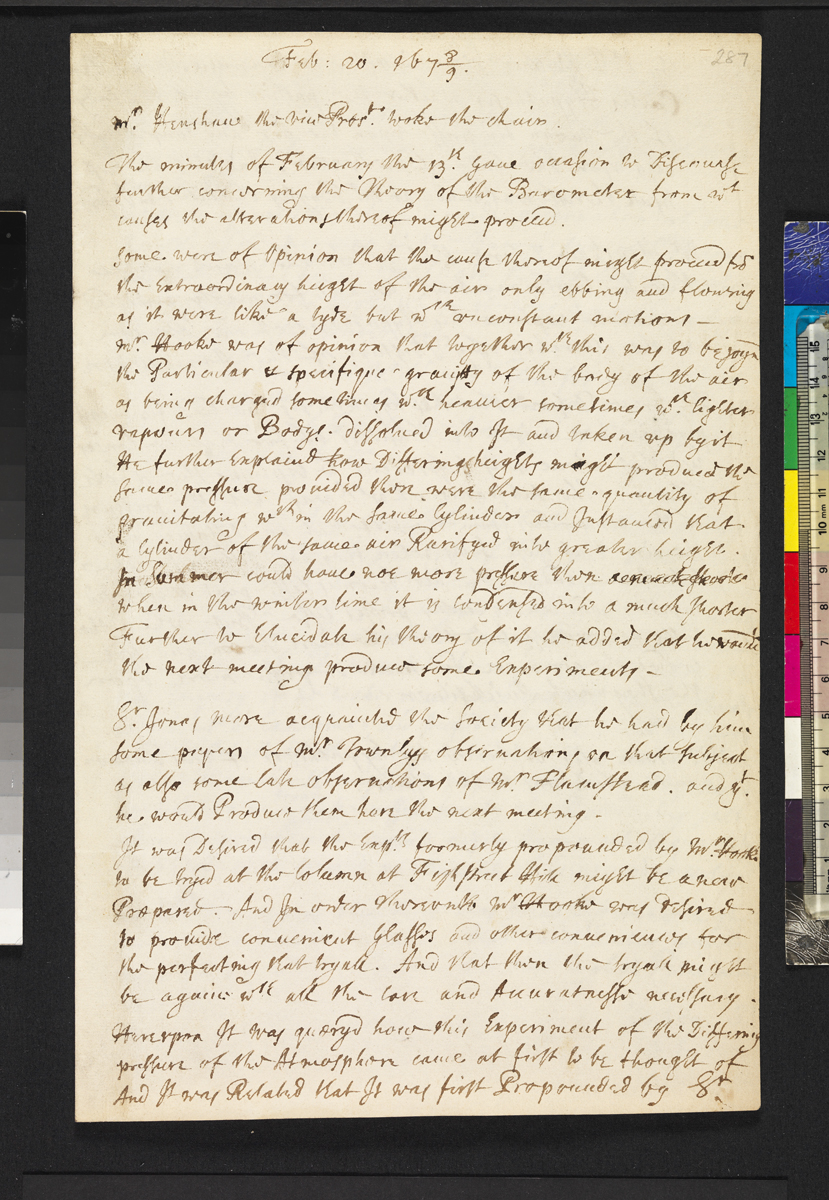 287
Feb: 20. 167 8/9.
mr. Henshaw the vice Presᵗ. tooke the chair.
The minutes of February the 13th. gave occasion to Discourse
further concerning the Theory of the Barometer from wt
causes the alterations thereof might proceed.
some were of Opinion that the cause thereof might proceed fro
the Extraordinary height of the air only ebbing and flowing
as it were like a tyde but wth unconstant motions -
mr. Hooke was of opinion that together wth. this was to be joynd
the Particular & specifique gravity of the body of the air
as being charged sometimes wth. heavier sometimes wth. lighter
vapours or Bodys. dissolved into It and taken up by it
He further Explaind how Differing heights might produce the
same pressure provided there were the same quantity of
gravitating wth in the same Cylinder and Instanced that
a Cylinder of the same air Rarifyed into greater height.
In Summer could have noe more pressure then
when in the winter time it is condensed into a much shorter
Further to Elucidate his theory of it he added that he would
the next meeting produce some Experiments -
Sr. Jonas more acquainted the Society that he had by him
some papers of mr. Townlys observations on that subject
as also some late observations of Mr. Flamstead. and yt.
he would Produce them here the next meeting -
It was Desired that the Expts formerly propounded by Mr. Hooke
to be tryd at the Column at Fishstreet Hill might be anew
Prepared. And In order thereunto mr Hooke was desired
to provide convenient Glasses and other conveniences for
the perfecting that tryall. And that then the tryall might
be againe wth all the care and Accuratnesse necessary.
Hereupon It was quæryd how this Experiment of the Differing
pressure of the Atmosphere came at first to be thought of
And It was Related that It was first Propounded by Sr